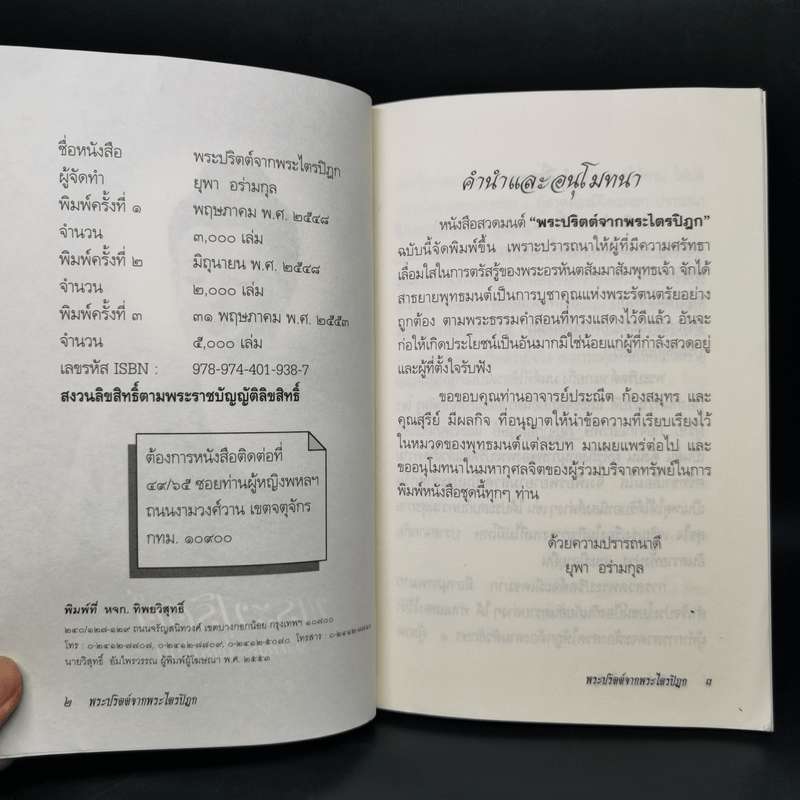 ชื่อหนังสือ พระปริตต์จากพระไตรปิฎก
ผู้จัดทำ ยุพา อร่ามกุล
พิมพ์ครั้งที่ ๑ พฤษภาคม พ.ศ. ๒๕๔๘
จำนวน ๓,๐๐๐ เล่ม
พิมพ์ครั้งที่ ๒ มิถุนายน พ.ศ. ๒๕๔๘
จำนวน ๒,๐๐๐ เล่ม
พิมพ์ครั้งที่ ๓ ๓๑ พฤษภาคม พ.ศ. ๒๕๕๓
จำนวน ๕,๐๐๐ เล่ม
เลขรหัส ISBN : 978-974-401-938-7
สงวนลิขสิทธิ์ตามพระราชบัญญัติลิขสิทธิ์
ต้องการหนังสือติดต่อที่
๔๙/๖๕ ซอยท่านผู้หญิงพหลฯ
ถนนงามวงศ์วาน เขตจตุจักร
กทม. ๑๐๙๐๐
พิมพ์ที่ หจก. ทิพยวิสุทธิ์
๒๔๐/๑๒๗-๑๒๙ ถนนจรัญสนิทวงศ์ เขตบางกอกน้อย กรุงเทพฯ ๑๐๗๐๐
โทร : ๐-๒๔๑๒-๗๗๐๗, ๐-๒๔๑๒-๗๗๐๙, ๐-๒๔๑๒-๕๐๗๐ โทรสาร :
นายวิสุทธิ์ อัมไพรวรรณ ผู้พิมพ์ผู้โฆษณา พ.ศ. ๒๕๕๓
๒ พระปริตต์จากพระไตรปิฎก
คำนำและอนุโมทนา
หนังสือสวดมนต์ “พระปริตต์จากพระไตรปิฎก”
ฉบับนี้จัดพิมพ์ขึ้น เพราะปรารถนาให้ผู้ที่มีความศรัทธา
เลื่อมใสในการตรัสรู้ของพระอรหันตสัมมาสัมพุทธเจ้า จักได้
สาธยายพุทธมนต์เป็นการบูชาคุณแห่งพระรัตนตรัยอย่าง
ถูกต้อง ตามพระธรรมคำสอนที่ทรงแสดงไว้ดีแล้ว อันจะ
ก่อให้เกิดประโยชน์เป็นอันมากมิใช่น้อยแก่ผู้ที่กำลังสวดอยู่
และผู้ที่ตั้งใจรับฟัง
ขอขอบคุณท่านอาจารย์ประณีต ก้องสมุทร และ
คุณสุรีย์ มีผลกิจ ที่อนุญาตให้นำข้อความที่เรียบเรียงไว้
ในหมวดของพุทธมนต์แต่ละบท มาเผยแพร่ต่อไป และ
ขออนุโมทนาในมหากุศลจิตของผู้ร่วมบริจาคทรัพย์ในการ
พิมพ์หนังสือชุดนี้ทุกๆ ท่าน
ด้วยความปรารถนาดี
ยุพา อร่ามกุล
พระปริตต์จากพระไตรปิฎก ๓